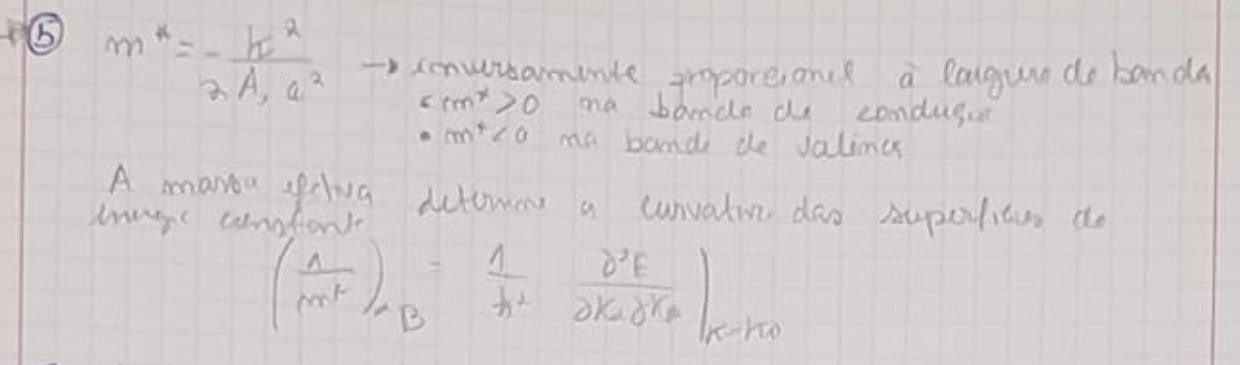 5 m* = - ħ² / 2 A₁ a² → inversamente proporcional à largura da banda
• m* > 0 na banda de condução
• m* < 0 na banda de valência
A massa efetiva determina a curvatura das superfícies de
energia constante
(1/m*)αB = 1/ħ² ∂²E/∂Kα∂Kβ |K=K0